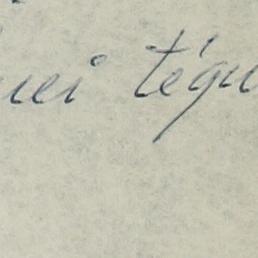 uei tégu